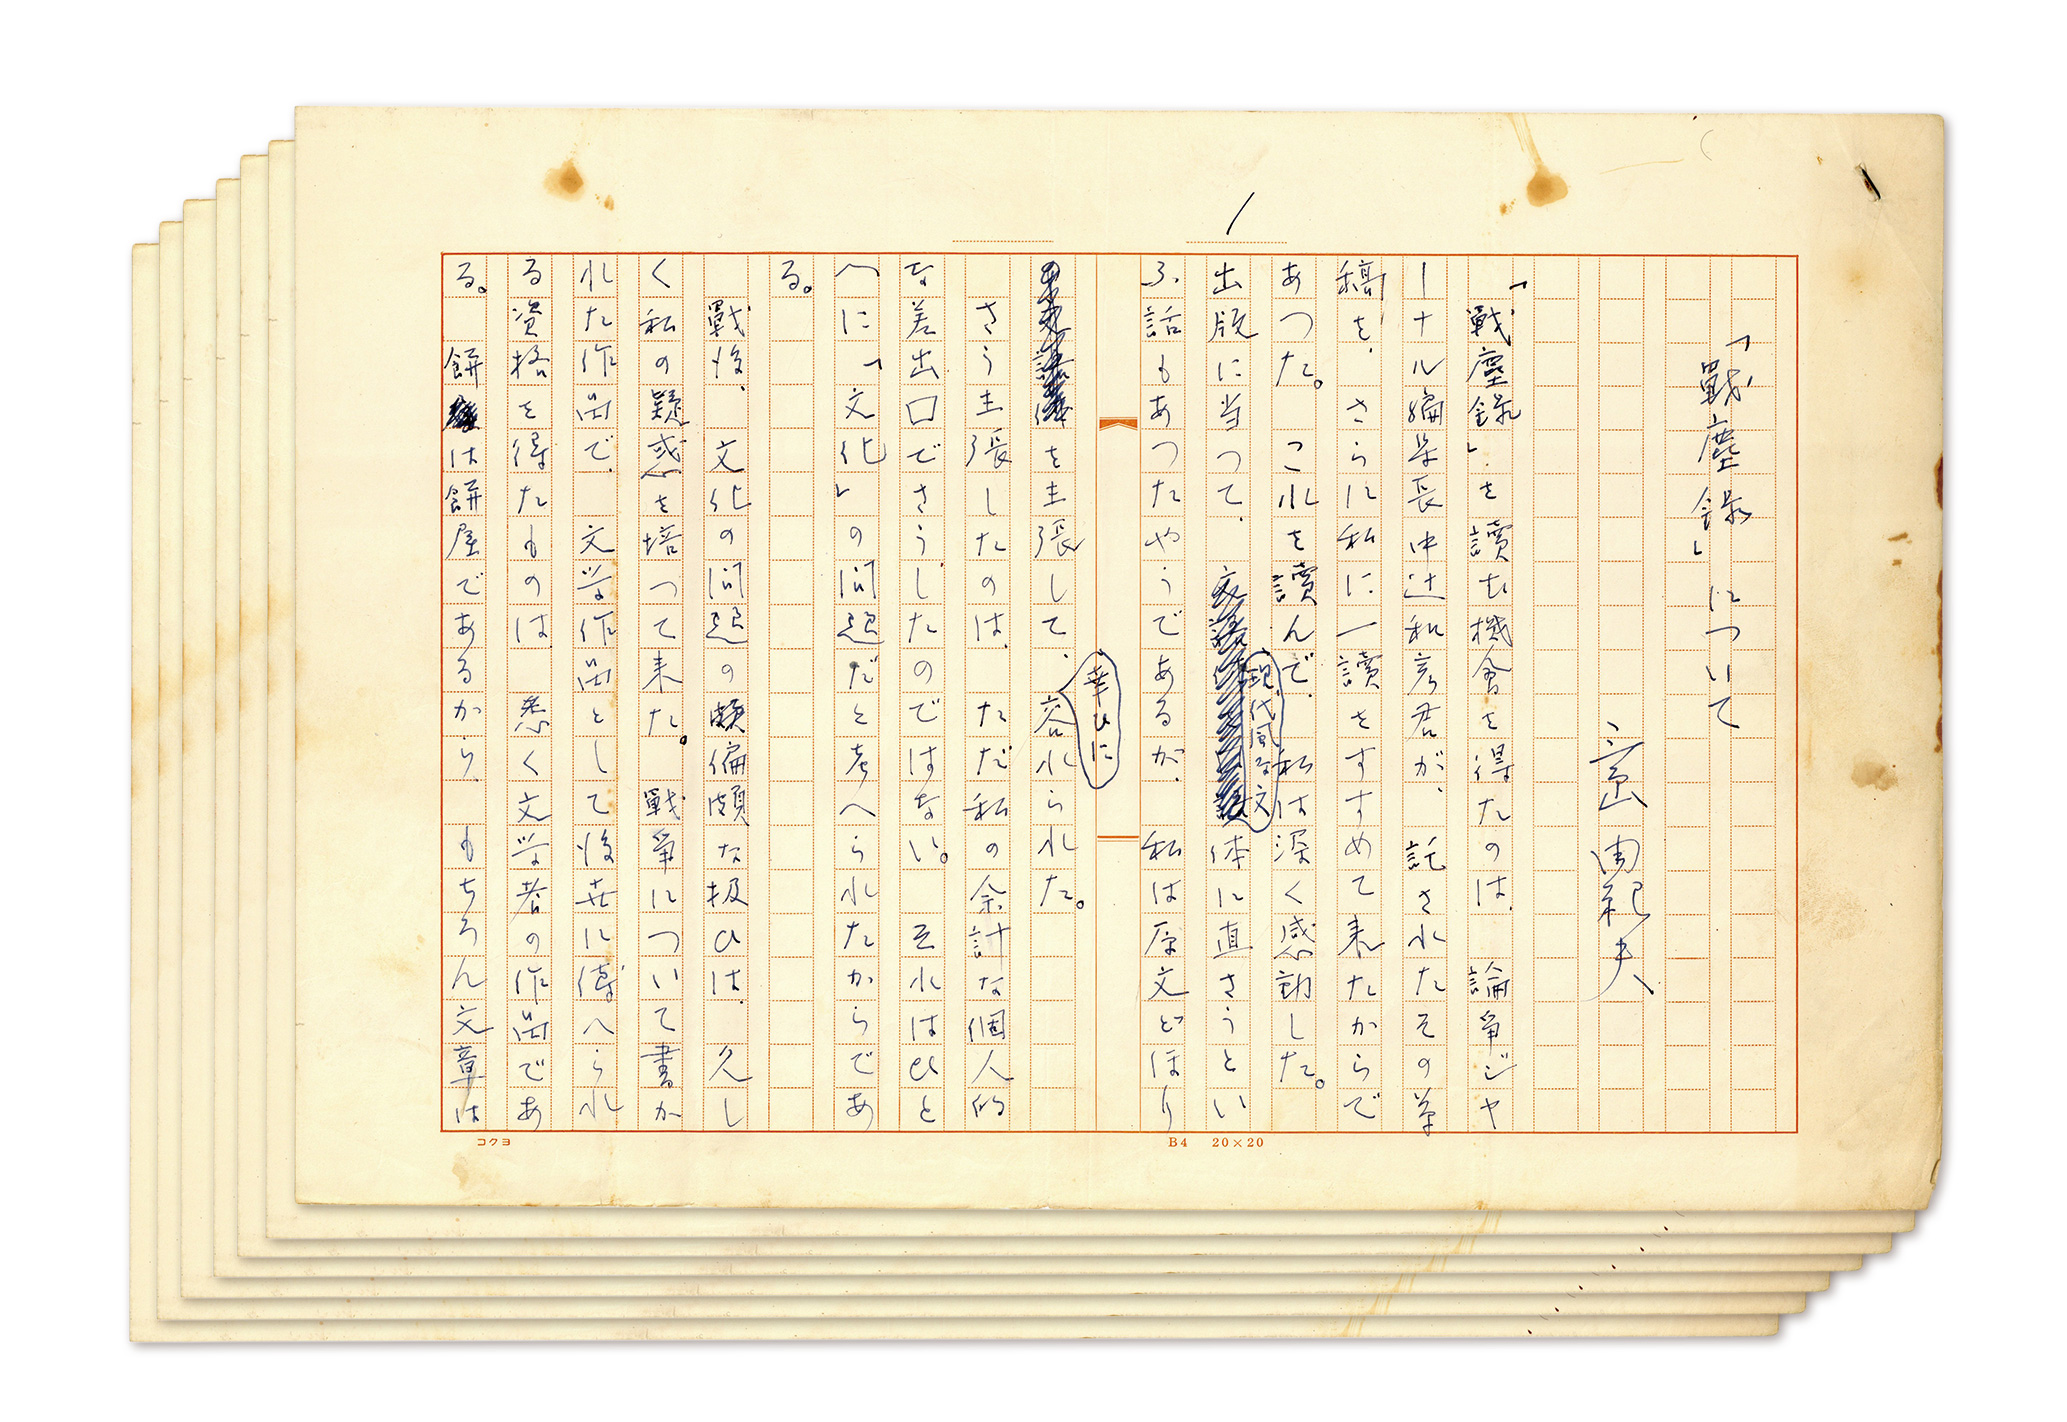 1
「戰塵録」について
三島由紀夫
「戰塵録」を讀む機会を得たのは、論爭ジヤ
ーナル編集長中辻和彦君が、託されたその草
稿を、さらに私に一讀をすすめて来たからで
あつた。これを讀んで、私は深く感動した。
出版に当つて、現代風な文体に直さうとい
ふ話もあつたやうであるが、私は原文どほり
を主張して、幸ひに容れられた。
さう主張したのは、ただ私の余計な個人的
な差出口でさうしたのではない。それはひと
へに「文化」の問題だと考へられたからであ
る。
戰後、文化の問題の偏頗な扱ひは、久し
く私の疑惑を培つて来た。戰爭について書か
れた作品で、文学作品として後世に傳へられ
る資格を得たものは、悉く文学者の作品であ
る。餅は餅屋であるから、もちろん文章は
コクヨ
B4 20×20